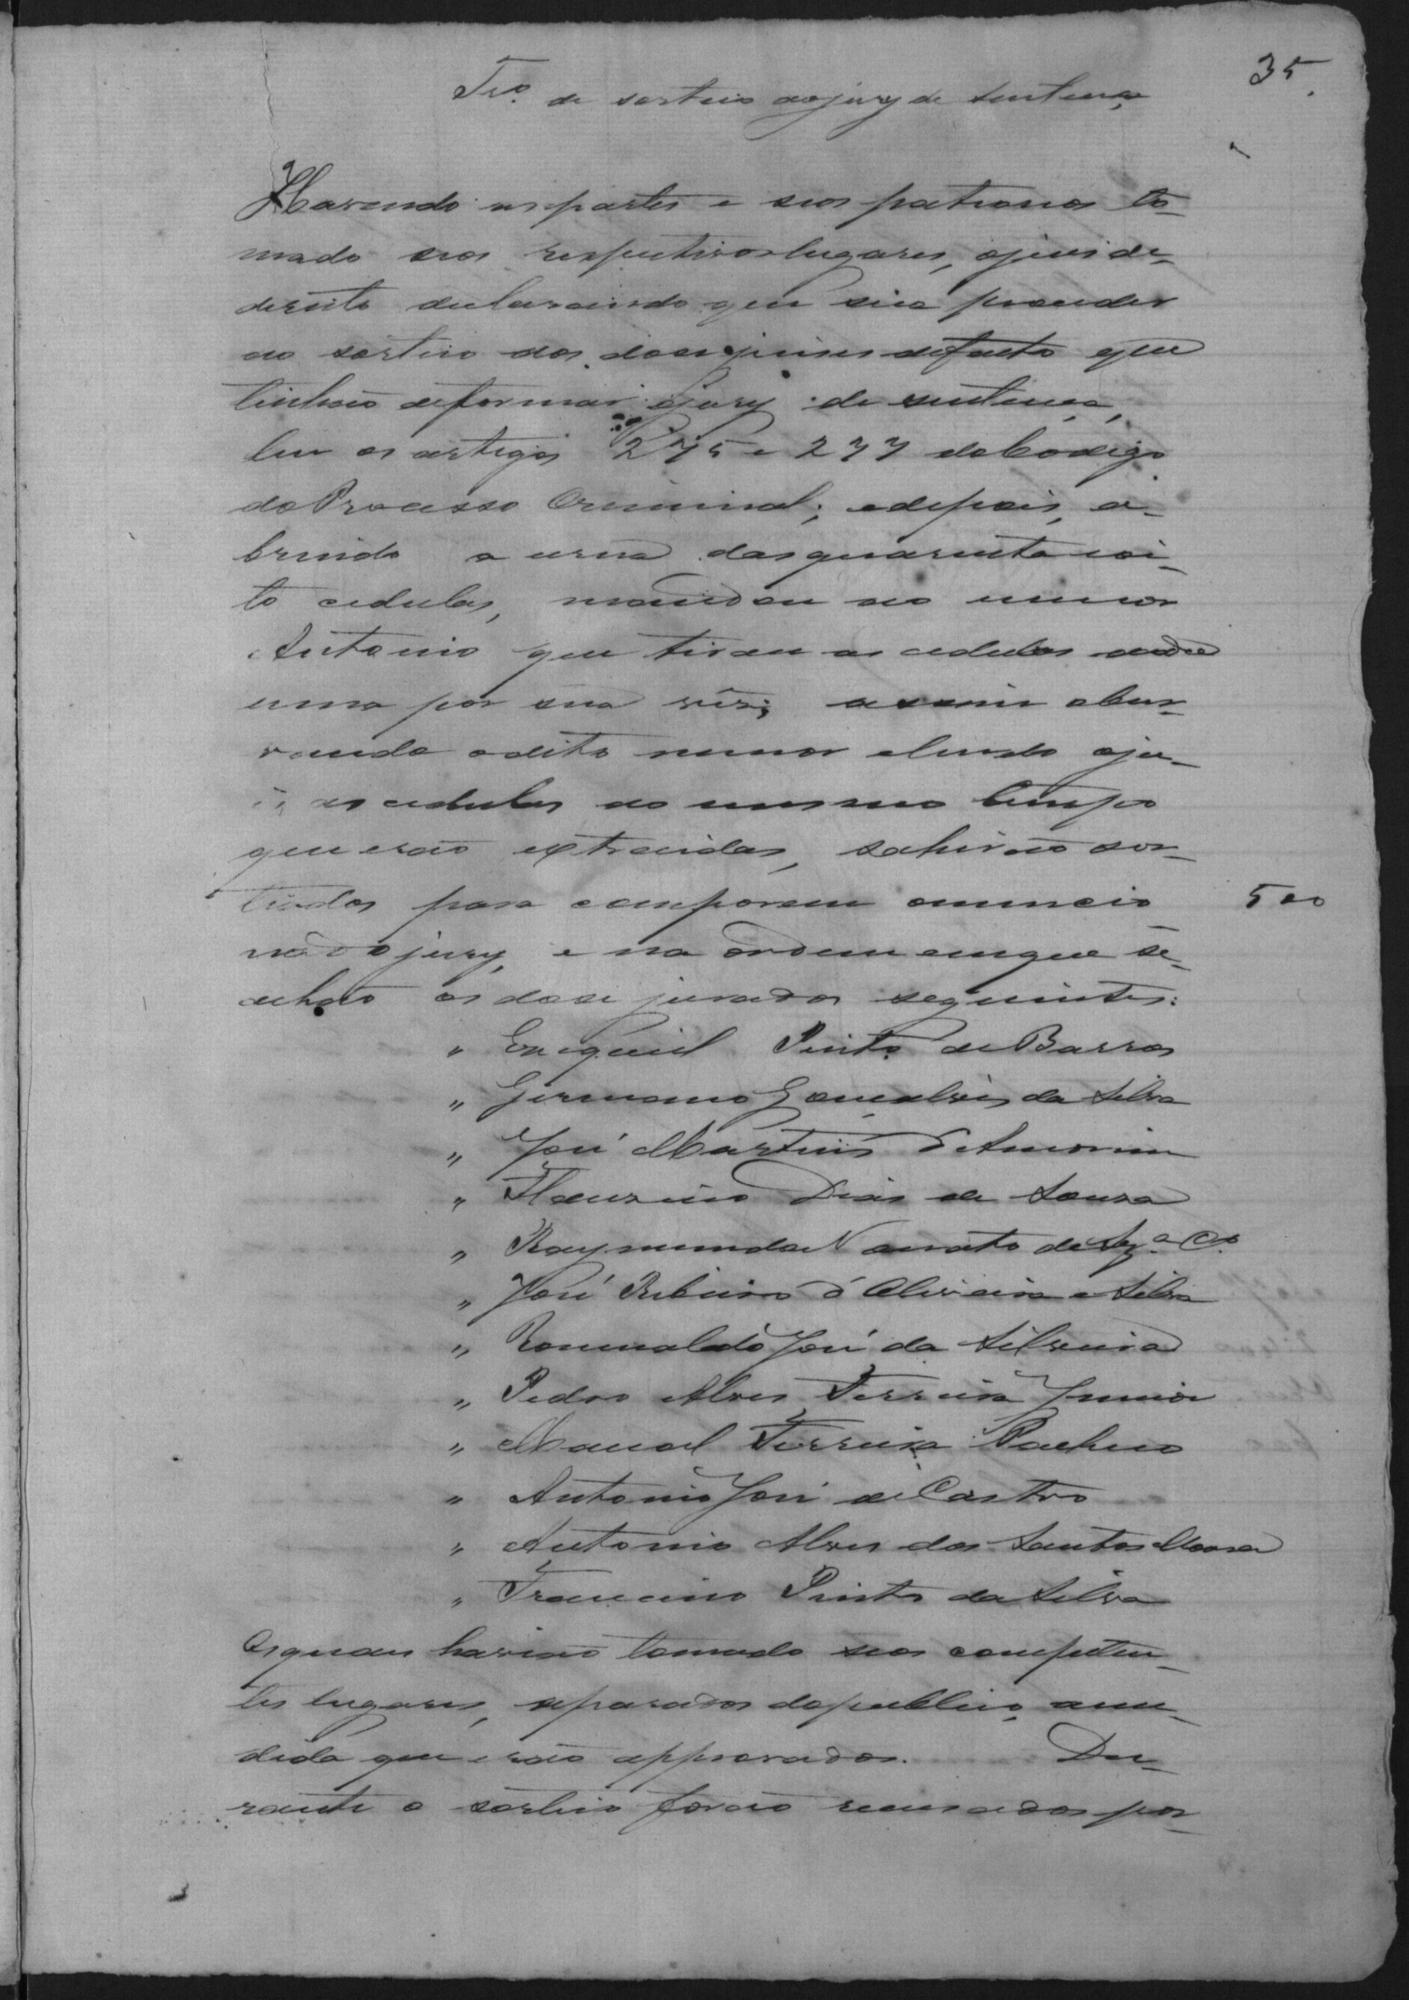 35
Tr.o de sorteio do jury de sentença
Havendo as partes e seos patronos to-
mado seos respectivos lugares, o juis de-
direito declarando que hia proceder
ao sorteio dos dose juises de facto que
tinhão de formar o jury de sentença,
leu os artigos 275 e 277 do Codigo
do Processo Criminal; e depois, a-
brindo a urna das quarenta e oi-
to cedulas, mandou ao menor
Antonio que tirasse as cedulas cada
uma por sua vês; e assim obser-
vando o dito menor e lendo o ju-
is as cedulas ao mesmo tempo
que erão extraidas, sahirão sor-
teados para comporem o
500
jury, e na ordem em que se-
achão os dose jurados seguintes:
" Esequiel Pinto de Barros
" Germano Gonçalves da Silva
" José Martins d'Amorim
" Flausino Dias de Sousa
" Raymundo Nonato de Sz.a C.o
" José Ribeiro d'Oliveira e Silva
" Romualdo José da Silveira
" Pedro Alves Ferreira Junior
" Manoel Ferreira Pacheco
" Antonio José de Castro
" Antonio Alves dos Santos
" Francino Pinto da Silva
Os quaes havião tomado seos competen-
tes lugares, separados do publico, a me-
dida que erão approvados. Du-
rante o sorteio forão recusados por-